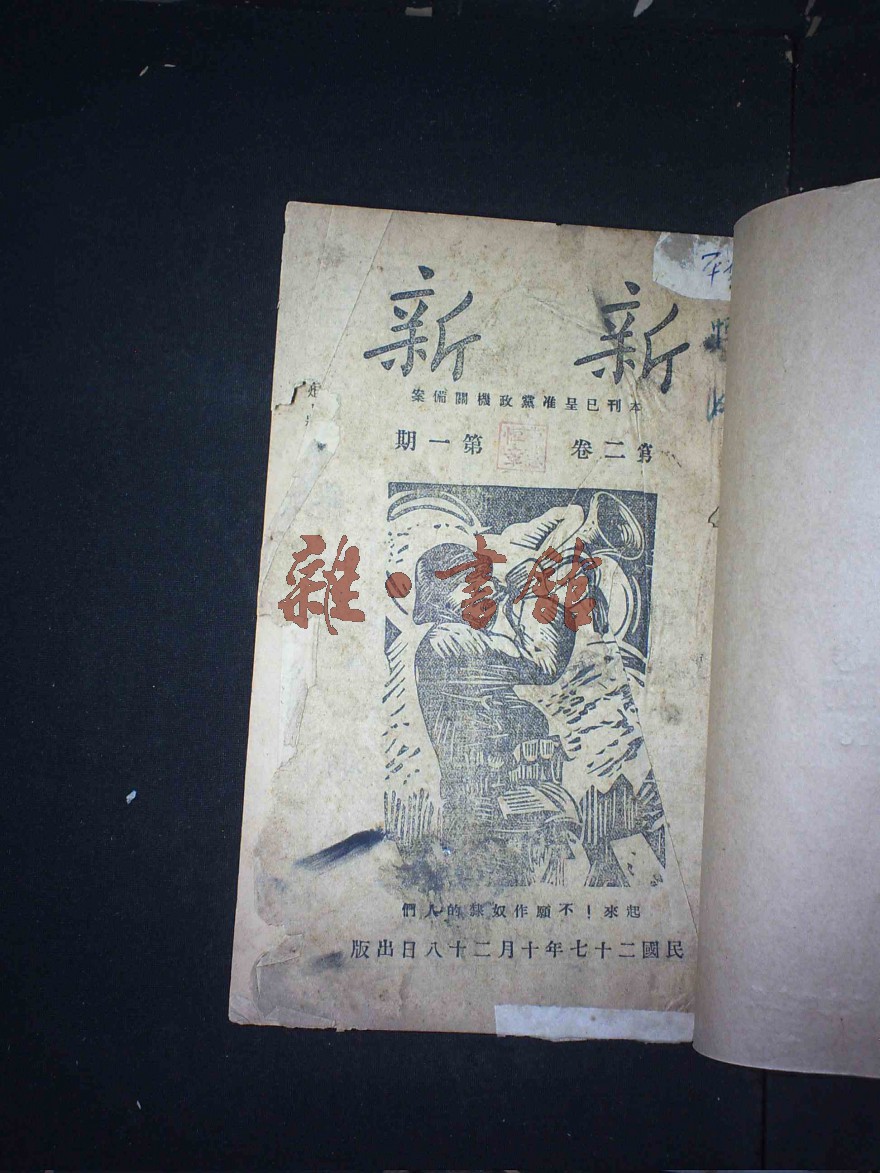 新新
本刊已呈准黨政機關備案
第二卷 第一期
雜·書館
起來！不願作奴隸的人們
民國二十七年十月二十八日出版